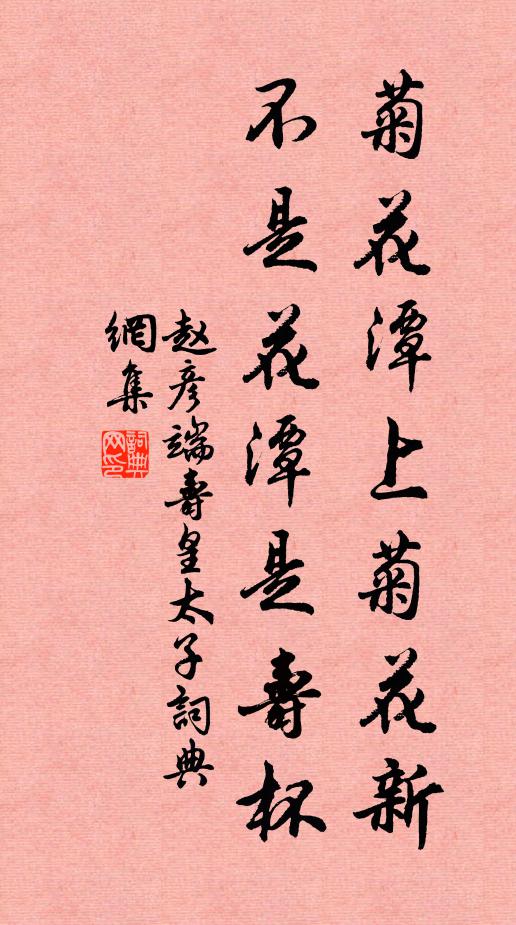 菊花潭上菊花新
不是花潭是壽杯
赵彦端壽皇太子詞典
網集
詞典
网印